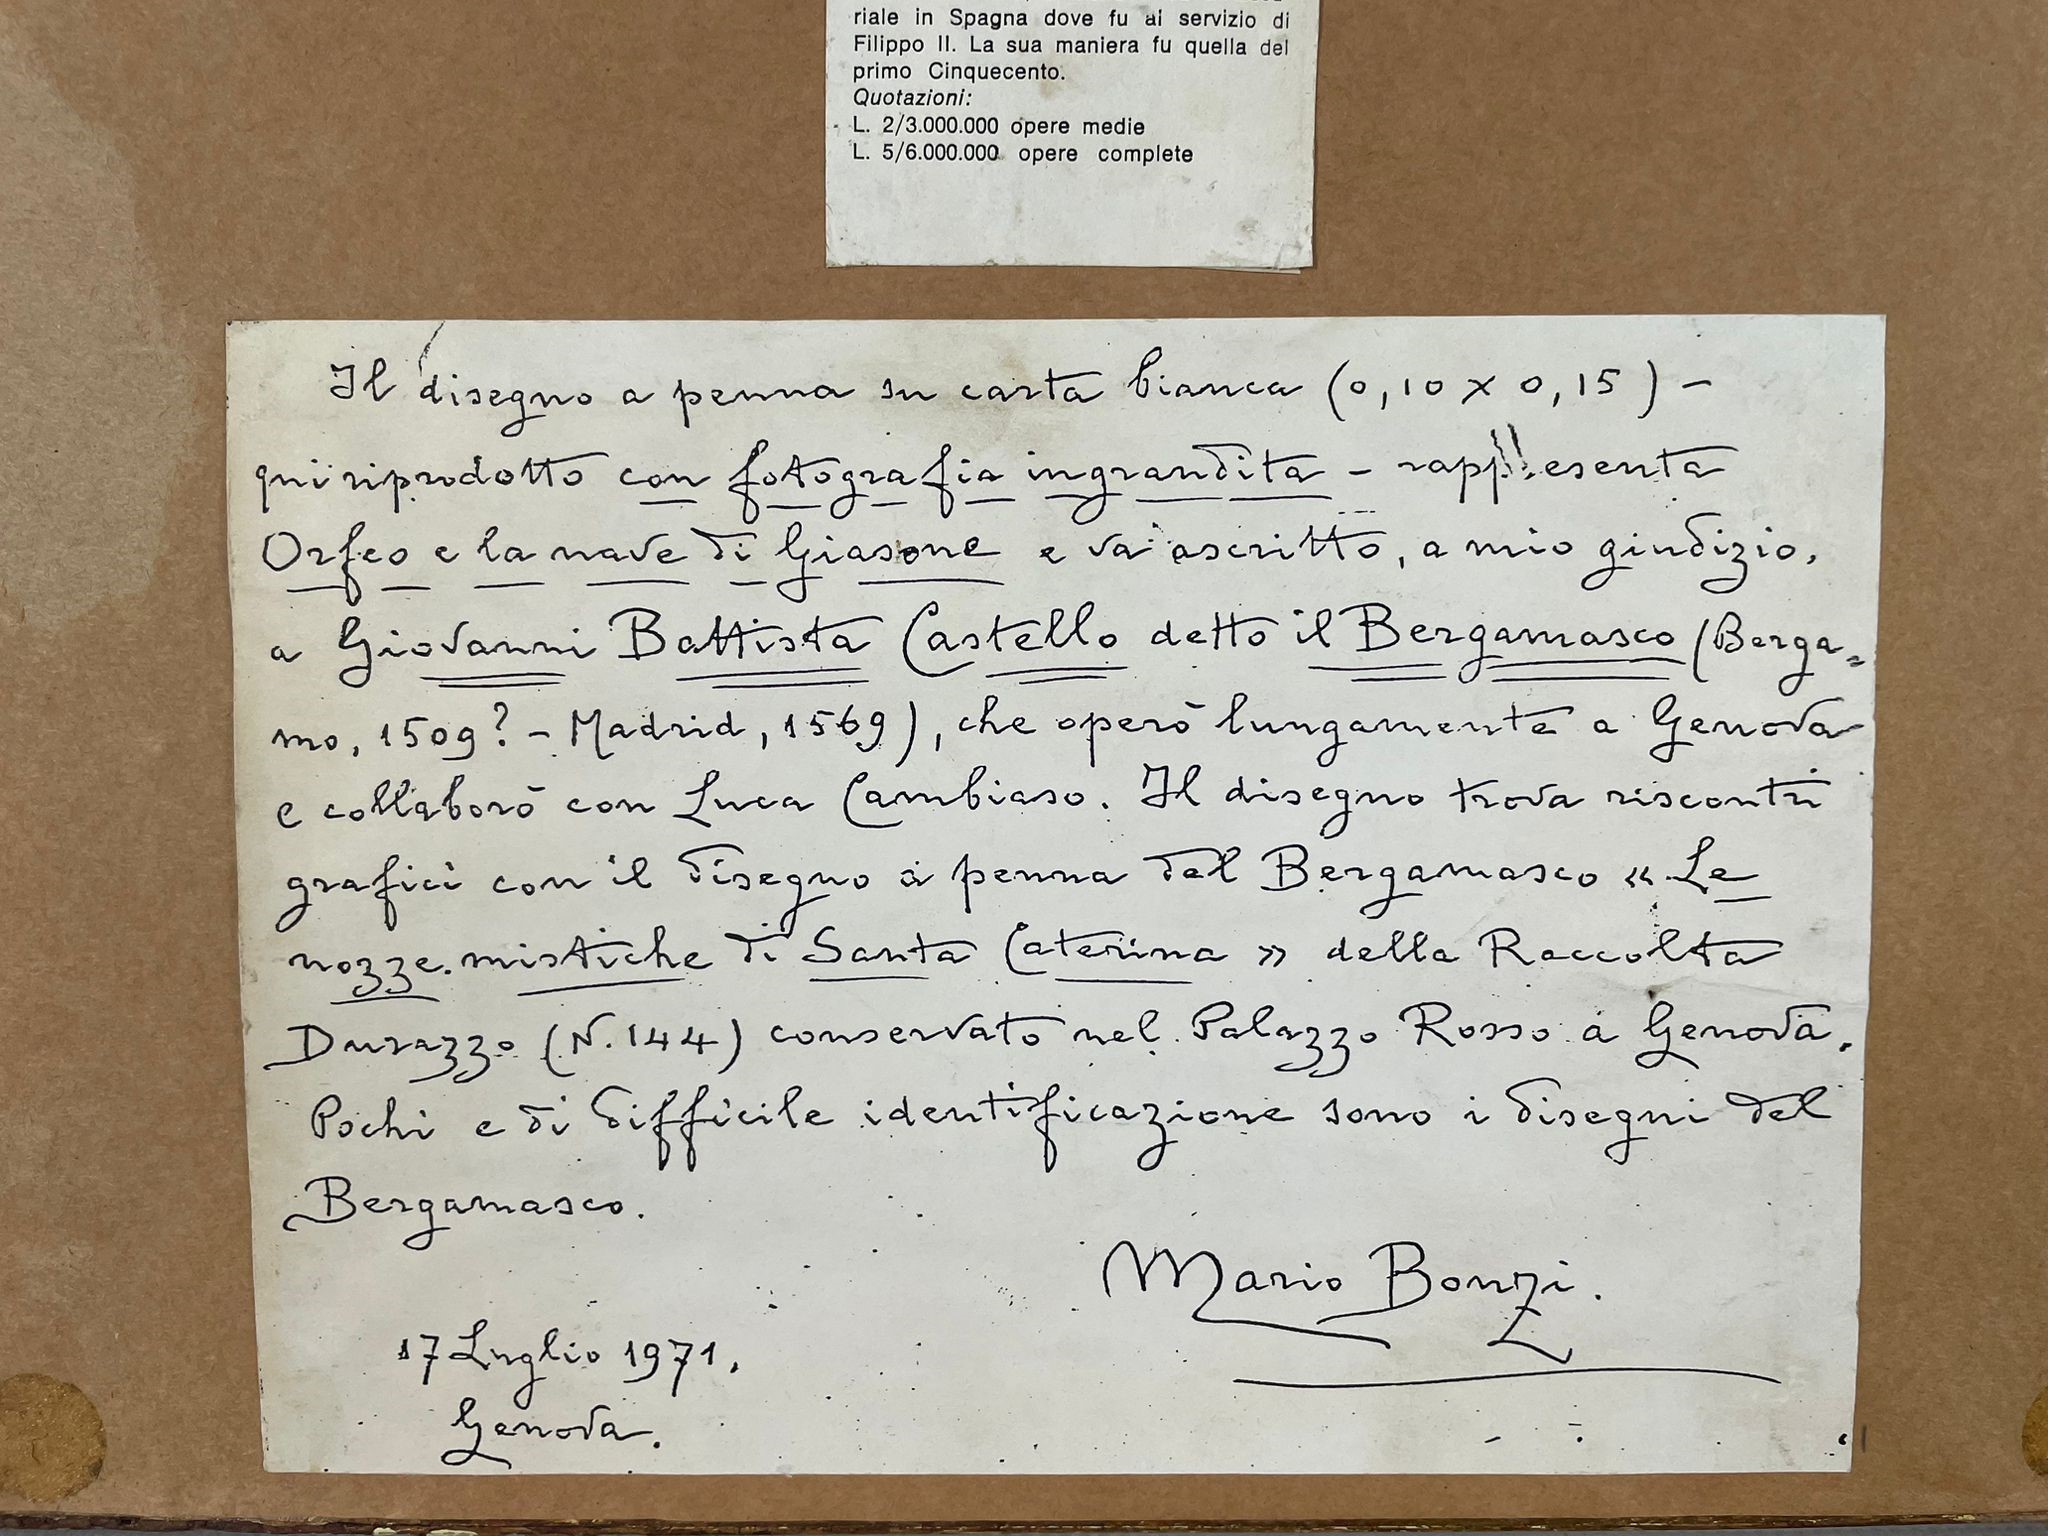 riale in Spagna dove fu al servizio di
Filippo II. La sua maniera fu quella del
primo Cinquecento.
Quotazioni:
L. 2/3.000.000 opere medie
L. 5/6.000.000 opere complete
Il disegno a penna su carta bianca (0,10 x 0,15) -
qui riprodotto con fotografia ingrandita - rappresenta
Orfeo e la nave di Giasone e va ascritto, a mio giudizio,
a Giovanni Battista Castello detto il Bergamasco (Berga=
mo, 1509? - Madrid, 1569), che operò lungamente a Genova
e collaborò con Luca Cambiaso. Il disegno trova riscontri
grafici con il disegno a penna del Bergamasco « Le
nozze mistiche di Santa Caterina » della Raccolta
Durazzo (N. 144) conservato nel Palazzo Rosso a Genova.
Pochi e di difficile identificazione sono i disegni del
Bergamasco.
Mario Bonzi.
17 Luglio 1971.
Genova.